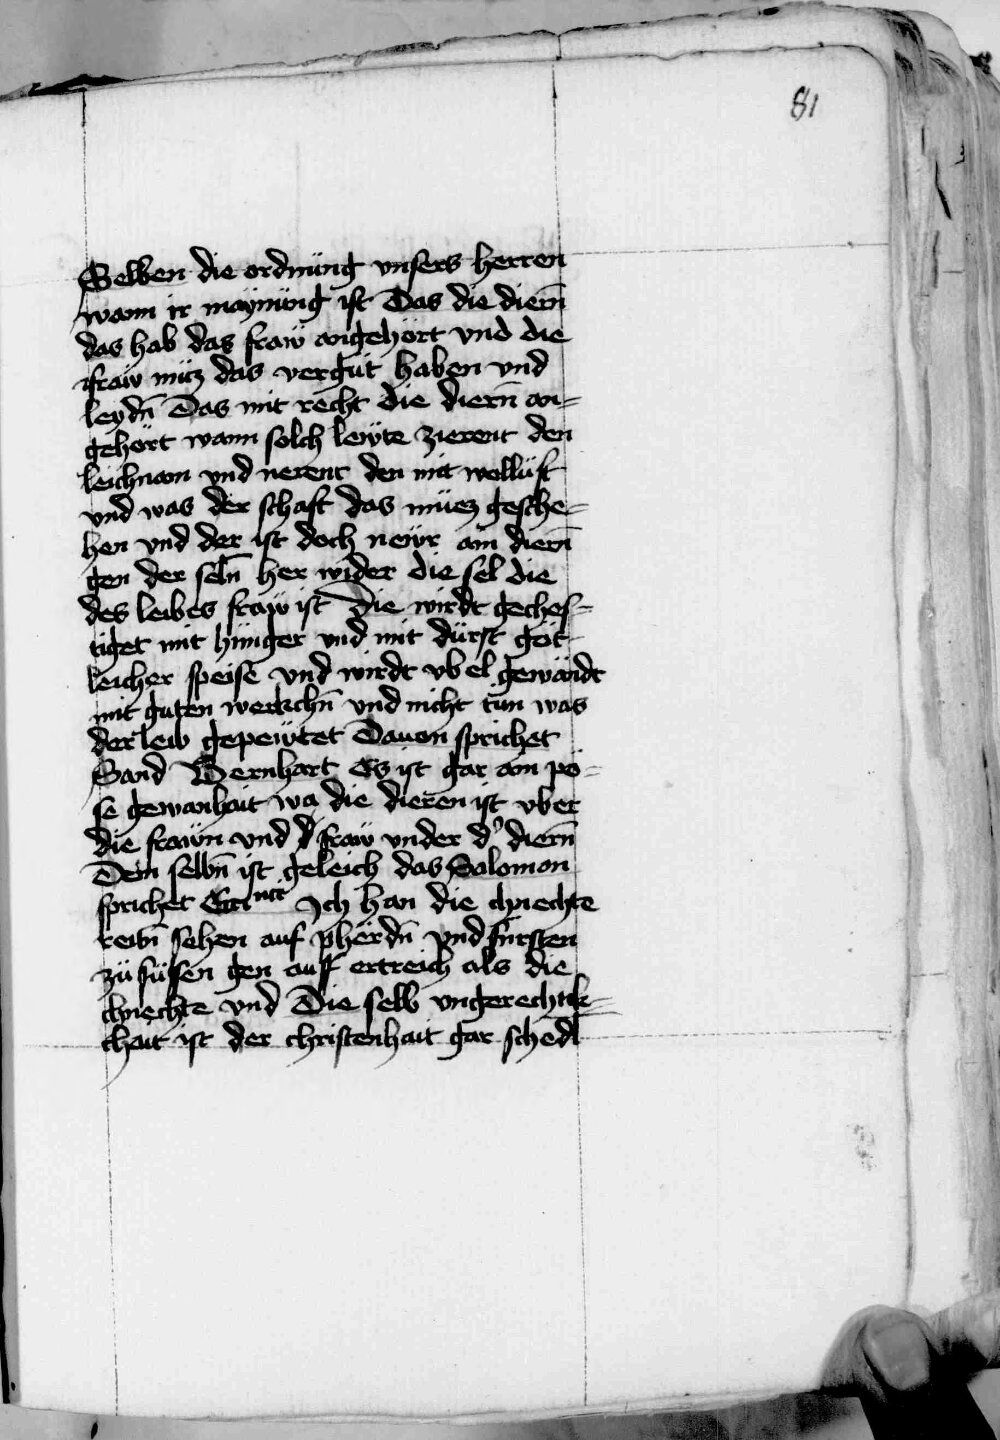 81
Selben die ordnung vnsers herren
wann ir maynung ist Das die diern̄
das hab das fraw angehört vnd die
fraw müz das vergüt haben vnd
leydn̄ Das mit recht die diern̄ an-
gehört wann solch lewte zierent den
leichnam vnd nerent den mit wollust
vnd was der schaft das müez gesche-
hen vnd der ist doch newr ain diern̄
gen der seln̄ her wider die sel die
des leibes fraw ist Die wirdt geches-
tiget mit hunger vnd mit dürst göt-
leicher speise vnd wirdt vbel gewandt
mit guten werkchn̄ vnd nicht tun was
der lew gepewtet Dauon sprichet
Sand Bernhart Es ist gar ain pö-
se gewanhait wa die dieren ist vber
die frawn vnd d' fraw vnder d' diern̄
Dem selbn̄ ist geleich das Salomon
sprichet Ich han die chnechte
reitn̄ sehen auf phërdn̄ vnd fürsten
zü füssen gen auf ertreich als die
chnechte vnd Die selb vngerechtik-
chait ist der christenhait gar schedl